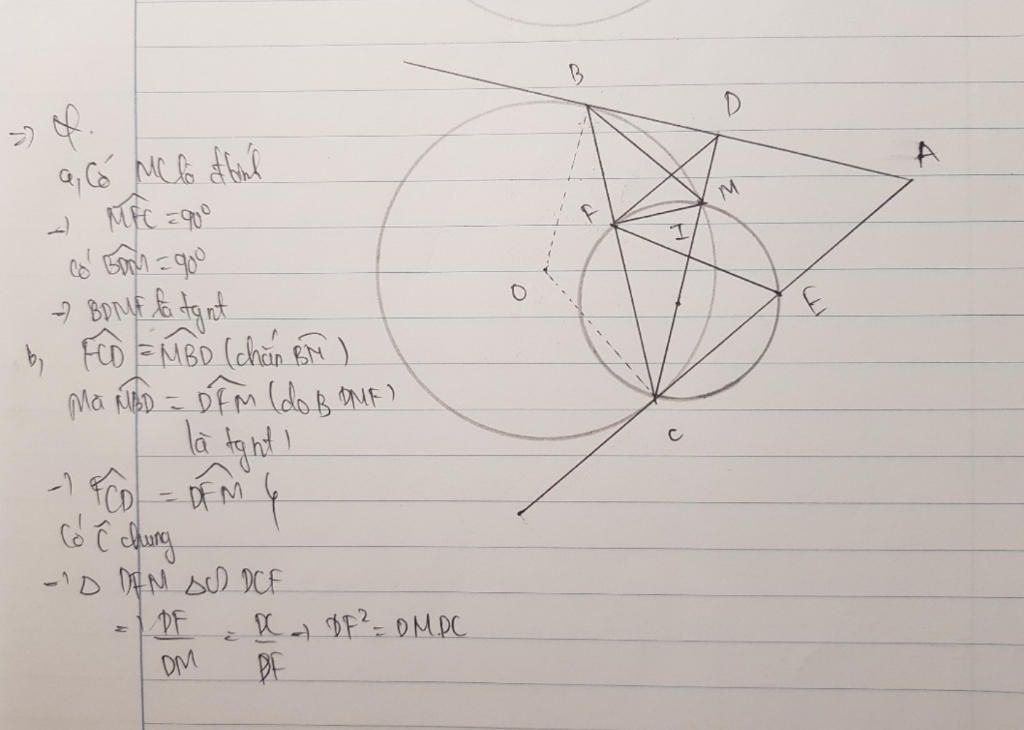 =>
a, Có MC là đkính
→ MFC = 90°
có BDM = 90°
→ BDMF là tgnt
b, FCD = MBD (chắn BM)
Mà MBD = DFM (do BDMF)
là tgnt)
→ FCD = DFM
Có C chung
→ Δ DFM ∽ DCF
= DF/DM = DC/DF → DF² = DM.DC
B
D
A
F
M
I
O
E
C